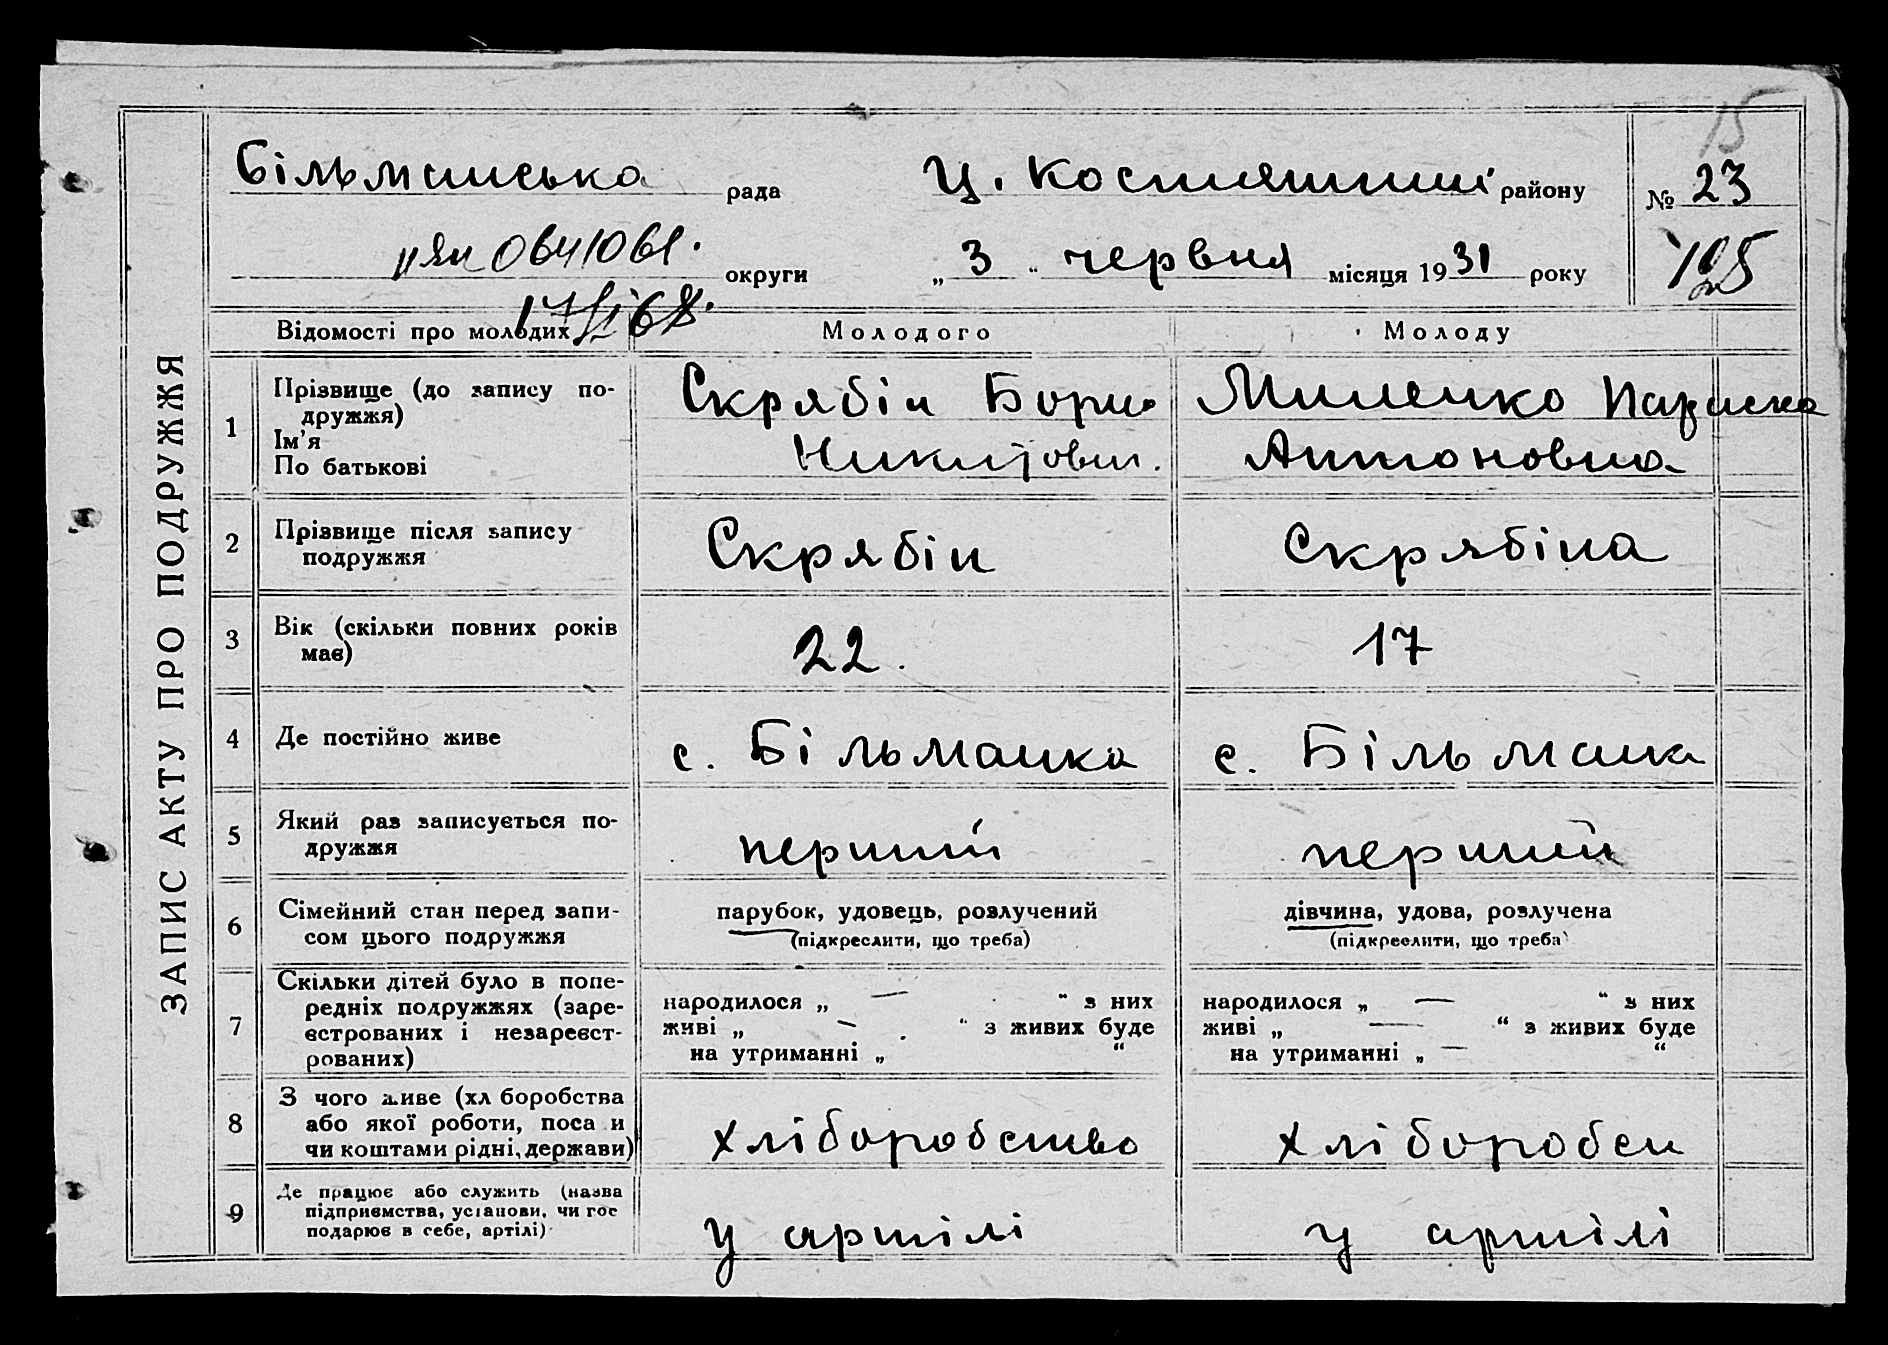 15
Більманська рада
Ц. Костянтині району
№ 23
ІІ ЯП 0641061.
округи
„ 3 “ червня місяця 1931 року
125
17/VI 68.
Відомості про молодих
Молодого
Молоду
ЗАПИС АКТУ ПРО ПОДРУЖЖЯ
1
Прізвище (до запису по-
дружжя)
Ім’я
По батькові
Скрябін Борис
Никитович.
Миленко Параска
Антоновна
2
Прізвище після запису
подружжя
Скрябін
Скрябіна
3
Вік (скільки повних років
має)
22.
17
4
Де постійно живе
с. Більманка
с. Більманка
5
Який раз записується по-
дружжя
перший
перший
6
Сімейний стан перед запи-
сом цього подружжя
парубок, удовець, розлучений
(підкреслити, що треба)
дівчина, удова, розлучена
(підкреслити, що треба)
7
Скільки дітей було в попе-
редніх подружжях (заре-
єстрованих і незареєст-
рованих)
народилося „ — “ з них
живі „ — “ з живих буде
на утриманні „ “
народилося „ — “ з них
живі „ — “ з живих буде
на утриманні „ — “
8
З чого живе (хл боробства
або якої роботи, поса и
чи коштами рідні, держави)
хліборобство
хлібороб
9
Де працює або служить (назва
підприємства, установи, чи гос
подарює в себе, артілі)
у артілі
у артілі